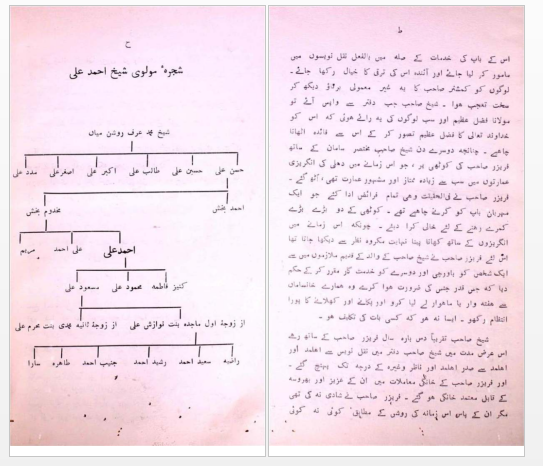 ح
شجرہٴ مولوی شیخ احمد علی
شیخ محمد عرف روشن میاں
حسن علی حسین علی طالب علی اکبر علی اصغر علی مدد علی
احمد بخش مخدوم بخش
احمد علی علی احمد مریم
کنیز فاطمہ محمود علی مسعود علی
از زوجۂ اول ماجدہ بنت نوازش علی از زوجۂ ثانیہ مہدی بنت محرم علی
راضیہ سعید احمد رشید احمد جنیب احمد طاہرہ سارا
ط
اس کے باپ کی خدمات کے صلہ میں بالفعل نقل نویسوں میں
مامور کر لیا جائے اور آئندہ اس کی ترقی کا خیال رکھا جائے۔
لوگوں کو کمشنر صاحب کا یہ غیر معمولی برتاؤ دیکھ کر
سخت تعجب ہوا۔ شیخ صاحب جب دفتر سے واپس آئے تو
مولانا فضل عظیم اور سب لوگوں کی یہ رائے ہوئی کہ اس کو
خداوند تعالیٰ کا فضل عظیم تصور کر کے اس سے فائدہ اٹھانا
چاہیے۔ چنانچہ دوسرے دن شیخ صاحب مختصر سامان کے ساتھ
فریزر صاحب کی کوٹھی پر، جو اس زمانے میں دہلی کی انگریزی
عمارتوں میں سب سے زیادہ ممتاز اور مشہور عمارت تھی، اٹھ گئے۔
فریزر صاحب نے فی‌الحقیقت وہی تمام فرائض ادا کئے جو ایک
مہربان باپ کو کرنے چاہیے تھے۔ کوٹھی کے دو بڑے بڑے
کمرے رہنے کے لئے خالی کرا دیئے۔ چونکہ اس زمانے میں
انگریزوں کے ساتھ کھانا پینا نہایت مکروہ نظر سے دیکھا جاتا تھا
اس لئے فریزر صاحب نے شیخ صاحب کے والد کے قدیم ملازموں میں سے
ایک شخص کو باورچی اور دوسرے کو خدمت گار مقرر کر کے حکم
دیا کہ جس قدر جنس کی ضرورت ہوا کرے وہ ہمارے خانساماں
سے ہفتہ وار یا ماہوار لے لیا کرو اور پکانے اور کھلانے کا پورا
انتظام رکھو۔ ایسا نہ ہو کہ کسی بات کی تکلیف ہو۔
شیخ صاحب تقریباً دس بارہ سال فریزر صاحب کے ساتھ رہے
اس عرض مدت میں شیخ صاحب دفتر میں نقل نویس سے اہلمد اور
اہلمد سے صدر اہلمد اور ناظر وغیرہ کے درجہ تک پہنچ گئے۔
اور فریزر صاحب کے خانگی معاملات میں ان کے عزیز اور بھروسہ
کے قابل معتمد خانگی ہو گئے۔ فریزر صاحب نے شادی نہ کی تھی
مگر ان کے پاس اس زمانہ کی روش کے مطابق کوئی نہ کوئی